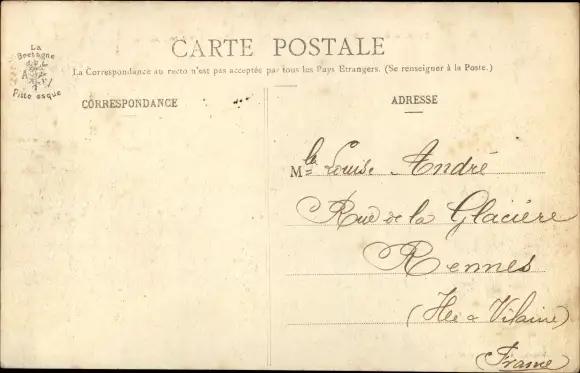 La
Bretagne
A
Pittoresque
CARTE POSTALE
La Correspondance au recto n'est pas acceptée par tous les Pays Etrangers. (Se renseigner à la Poste.)
CORRESPONDANCE
ADRESSE
Mlle Louise André
Rue de la Glacière
Rennes
(Ille & Vilaine)
France